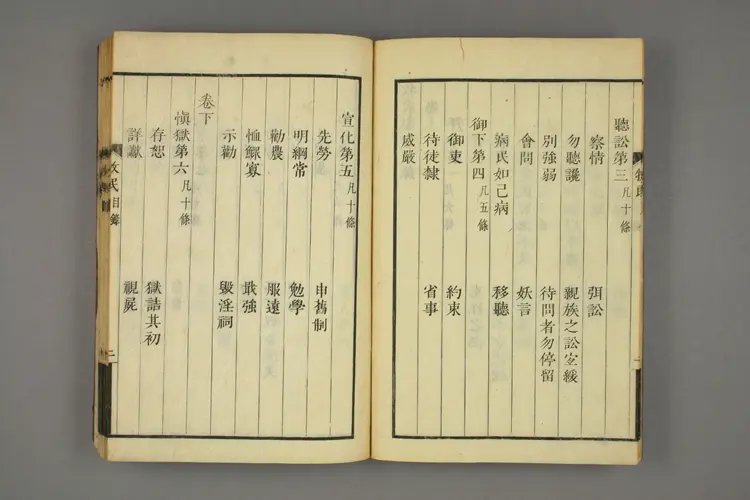 聽訟第三 凡十條
察情 弭訟
勿聽讒 親族之訟宜緩
別強弱 待問者勿停留
會問 妖言
病民如己病 移聽
御下第四 凡五條
御吏 約束
待徒隸 省事
威嚴
宣化第五 凡十條
先勞 申舊制
明綱常 勉學
勸農 服遠
恤鰥寡 戢強
示勸 毀淫祠
卷下
愼獄第六 凡十條
存恕 獄詰其初
詳讞 視屍
牧民 目錄
二